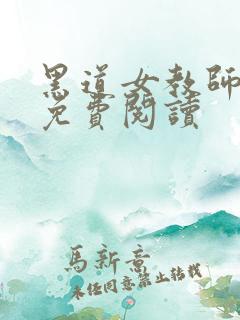 黑道女教師
免費閱讀
馬新意
未任同意禁止转载